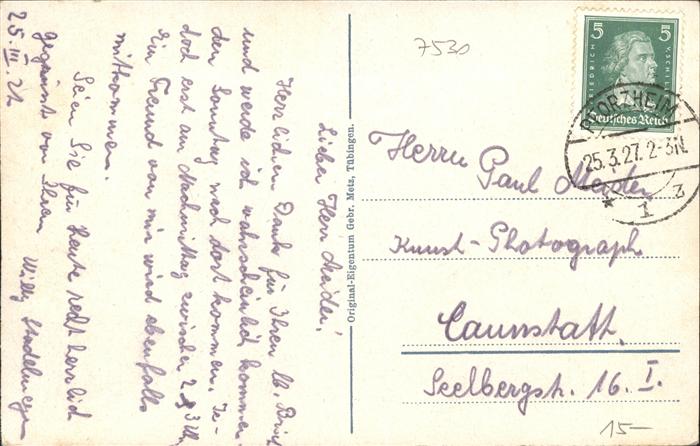 Lieber Herr Meider!
Herzlichen Dank für Ihren lb. Brief
und werde ich wahrscheinlich kommen-
den Sonntag nach dort kommen. Je-
doch erst am Nachmittag zwischen 2 & 3 Uhr
Ein Freund von mir wird ebenfalls
mitkommen.
Seien Sie für heute recht herzlich
gegrüsst von Ihrem Willy
25.III.27
Original-Eigentum Gebr. Metz, Tübingen.
7530
5 5
FRIEDRICH V. SCHILLER
Deutsches Reich
PFORZHEIM
25.3.27. 2-3N.
* 1 z
Herrn
Paul Meider
Kunst-Photograph
Cannstatt.
Seelbergstr. 16. I.
15—